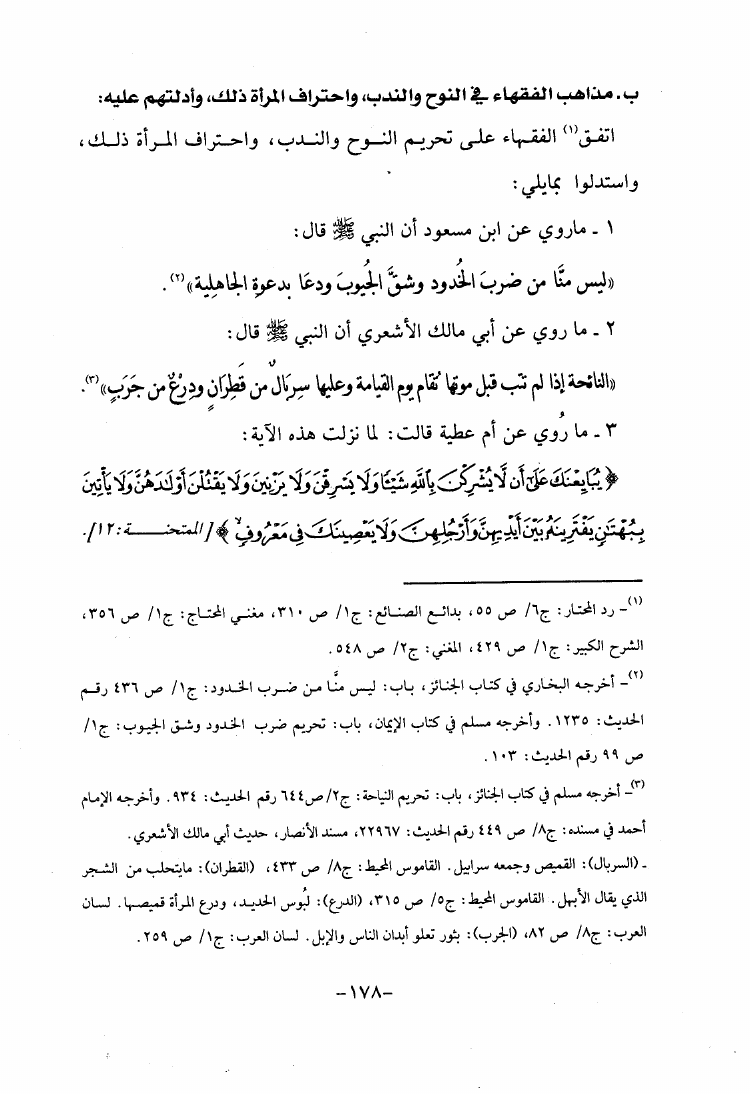 ب. مذاهب الفقهاء في النوح والندب، واحتراف المرأة ذلك، وأدلتهم عليه:
اتفق(١) الفقهاء على تحريم النوح والندب، واحتراف المرأة ذلك،
واستدلوا بمايلي:
١ ـ ماروي عن ابن مسعود أن النبي ﷺ قال:
«ليس منَّا من ضربَ الخُدود وشقَّ الجُيوبَ ودعَا بدعوةِ الجاهلية»(٢).
٢ ـ ما روي عن أبي مالك الأشعري أن النبي ﷺ قال:
«النائحة إذا لم تتب قبل موتها تُقام يوم القيامة وعليها سِربَالٌ من قَطِرَانٍ ودِرْعٌ من جَرَبٍ»(٣).
٣ ـ ما رُوي عن أم عطية قالت: لما نزلت هذه الآية:
﴿ يُبَايِعْنَكَ عَلَىٰ أَن لَّا يُشْرِكْنَ بِاللَّهِ شَيْئًا وَلَا يَسْرِقْنَ وَلَا يَزْنِينَ وَلَا يَقْتُلْنَ أَوْلَادَهُنَّ وَلَا يَأْتِينَ
بِبُهْتَانٍ يَفْتَرِينَهُ بَيْنَ أَيْدِيهِنَّ وَأَرْجُلِهِنَّ وَلَا يَعْصِينَكَ فِي مَعْرُوفٍ ﴾ [الممتحنة: ١٢].
(١)ـ رد المحتار: ج٦/ ص ٥٥، بدائع الصنائع: ج١/ ص ٣١٠، مغني المحتاج: ج١/ ص ٣٥٦،
الشرح الكبير: ج١/ ص ٤٢٩، المغني: ج٢/ ص ٥٤٨.
(٢)ـ أخرجه البخاري في كتاب الجنائز، باب: ليس منَّا من ضرب الخدود: ج١/ ص ٤٣٦ رقم
الحديث: ١٢٣٥. وأخرجه مسلم في كتاب الإيمان، باب: تحريم ضرب الخدود وشق الجيوب: ج١/
ص ٩٩ رقم الحديث: ١٠٣.
(٣)ـ أخرجه مسلم في كتاب الجنائز، باب: تحريم النياحة: ج٢/ص٦٤٤ رقم الحديث: ٩٣٤. وأخرجه الإمام
أحمد في مسنده: ج٨/ ص ٤٤٩ رقم الحديث: ٢٢٩٦٧، مسند الأنصار، حديث أبي مالك الأشعري.
ـ (السربال): القميص وجمعه سرابيل. القاموس المحيط: ج٨/ ص ٤٣٣، (القطران): مايتحلب من الشجر
الذي يقال الأبهل. القاموس المحيط: ج٥/ ص ٣١٥، (الدرع): لبُوس الحديد، ودرع المرأة قميصها. لسان
العرب: ج٨/ ص ٨٢، (الجرب): بثور تعلو أبدان الناس والإبل. لسان العرب: ج١/ ص ٢٥٩.
-١٧٨-